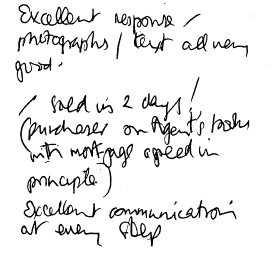 Excellent response /
photographs / text all very
good.
/ sold in 2 days /
(purchaser on Agent's books
with mortgage agreed in
principle)
Excellent communication
at every step